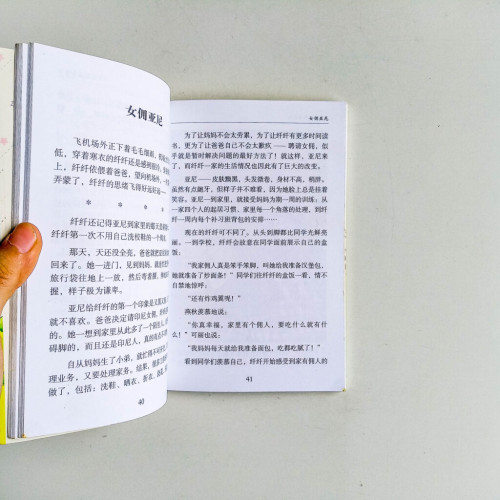 女佣亚尼
飞机场外正下着毛毛细雨，机
低，穿着寒衣的纤纤还是感到
上，纤纤依偎着爸爸，望向机场外，
弄蒙了，纤纤的思绪飞得好远好远
* * * *
纤纤还记得亚尼到家里的那天是
纤纤第一次不用自己洗校鞋的一个
那天，天还没全亮，爸爸就把亚尼
回来了。她一进门，见到妈妈，就
旅行袋往地上一放，然后弯着腰，
握，样子极为谦卑。
亚尼给纤纤的第一个印象是又黑又
就不喜欢。爸爸决定请印尼女佣，
的。她一想到家里从此多了一个陌生人
碍脚的，而且还是印尼人，真的有点
自从妈妈生了小弟，就忙得不可
理业务，又要处理家务。结果，
做了，包括：洗鞋、晒衣、折衣、
40
女佣亚尼
为了让妈妈不会太劳累，为了让纤纤有更多时间读
书，更为了让爸爸自己不会太歉疚 —— 聘请女佣，似
乎就是暂时解决问题的最好方法了！就这样，亚尼来
了，而纤纤一家的生活情况也因此有了巨大的改变。
亚尼 —— 皮肤黝黑，头发微卷，身材不高，稍胖，
虽然有点龅牙，但样子并不难看，因为她脸上总是挂着
笑容。亚尼一到家里，就接受妈妈为期一周的训练：从
一家四个人的起居习惯、家里每一个角落的处理，到纤
纤一周内每个补习班背包的安排……
现在的纤纤可不同了，从头到脚都比同学光鲜亮
丽。一到学校，纤纤会故意在同学面前展示自己的盒
饭：
“我家佣人真是笨手笨脚，叫她给我准备汉堡包，
她就准备了炒面条！”同学们往纤纤的盒饭一看，情不
自禁地惊呼：
“还有炸鸡翼呢！”
燕秋羡慕地说：
“你真幸福，家里有个佣人，要吃什么就有什
么！”可丽也说：
“我妈妈每天就给我准备面包，吃都吃腻了！”
看到同学们羡慕自己，纤纤开始感受到家有佣人的
41